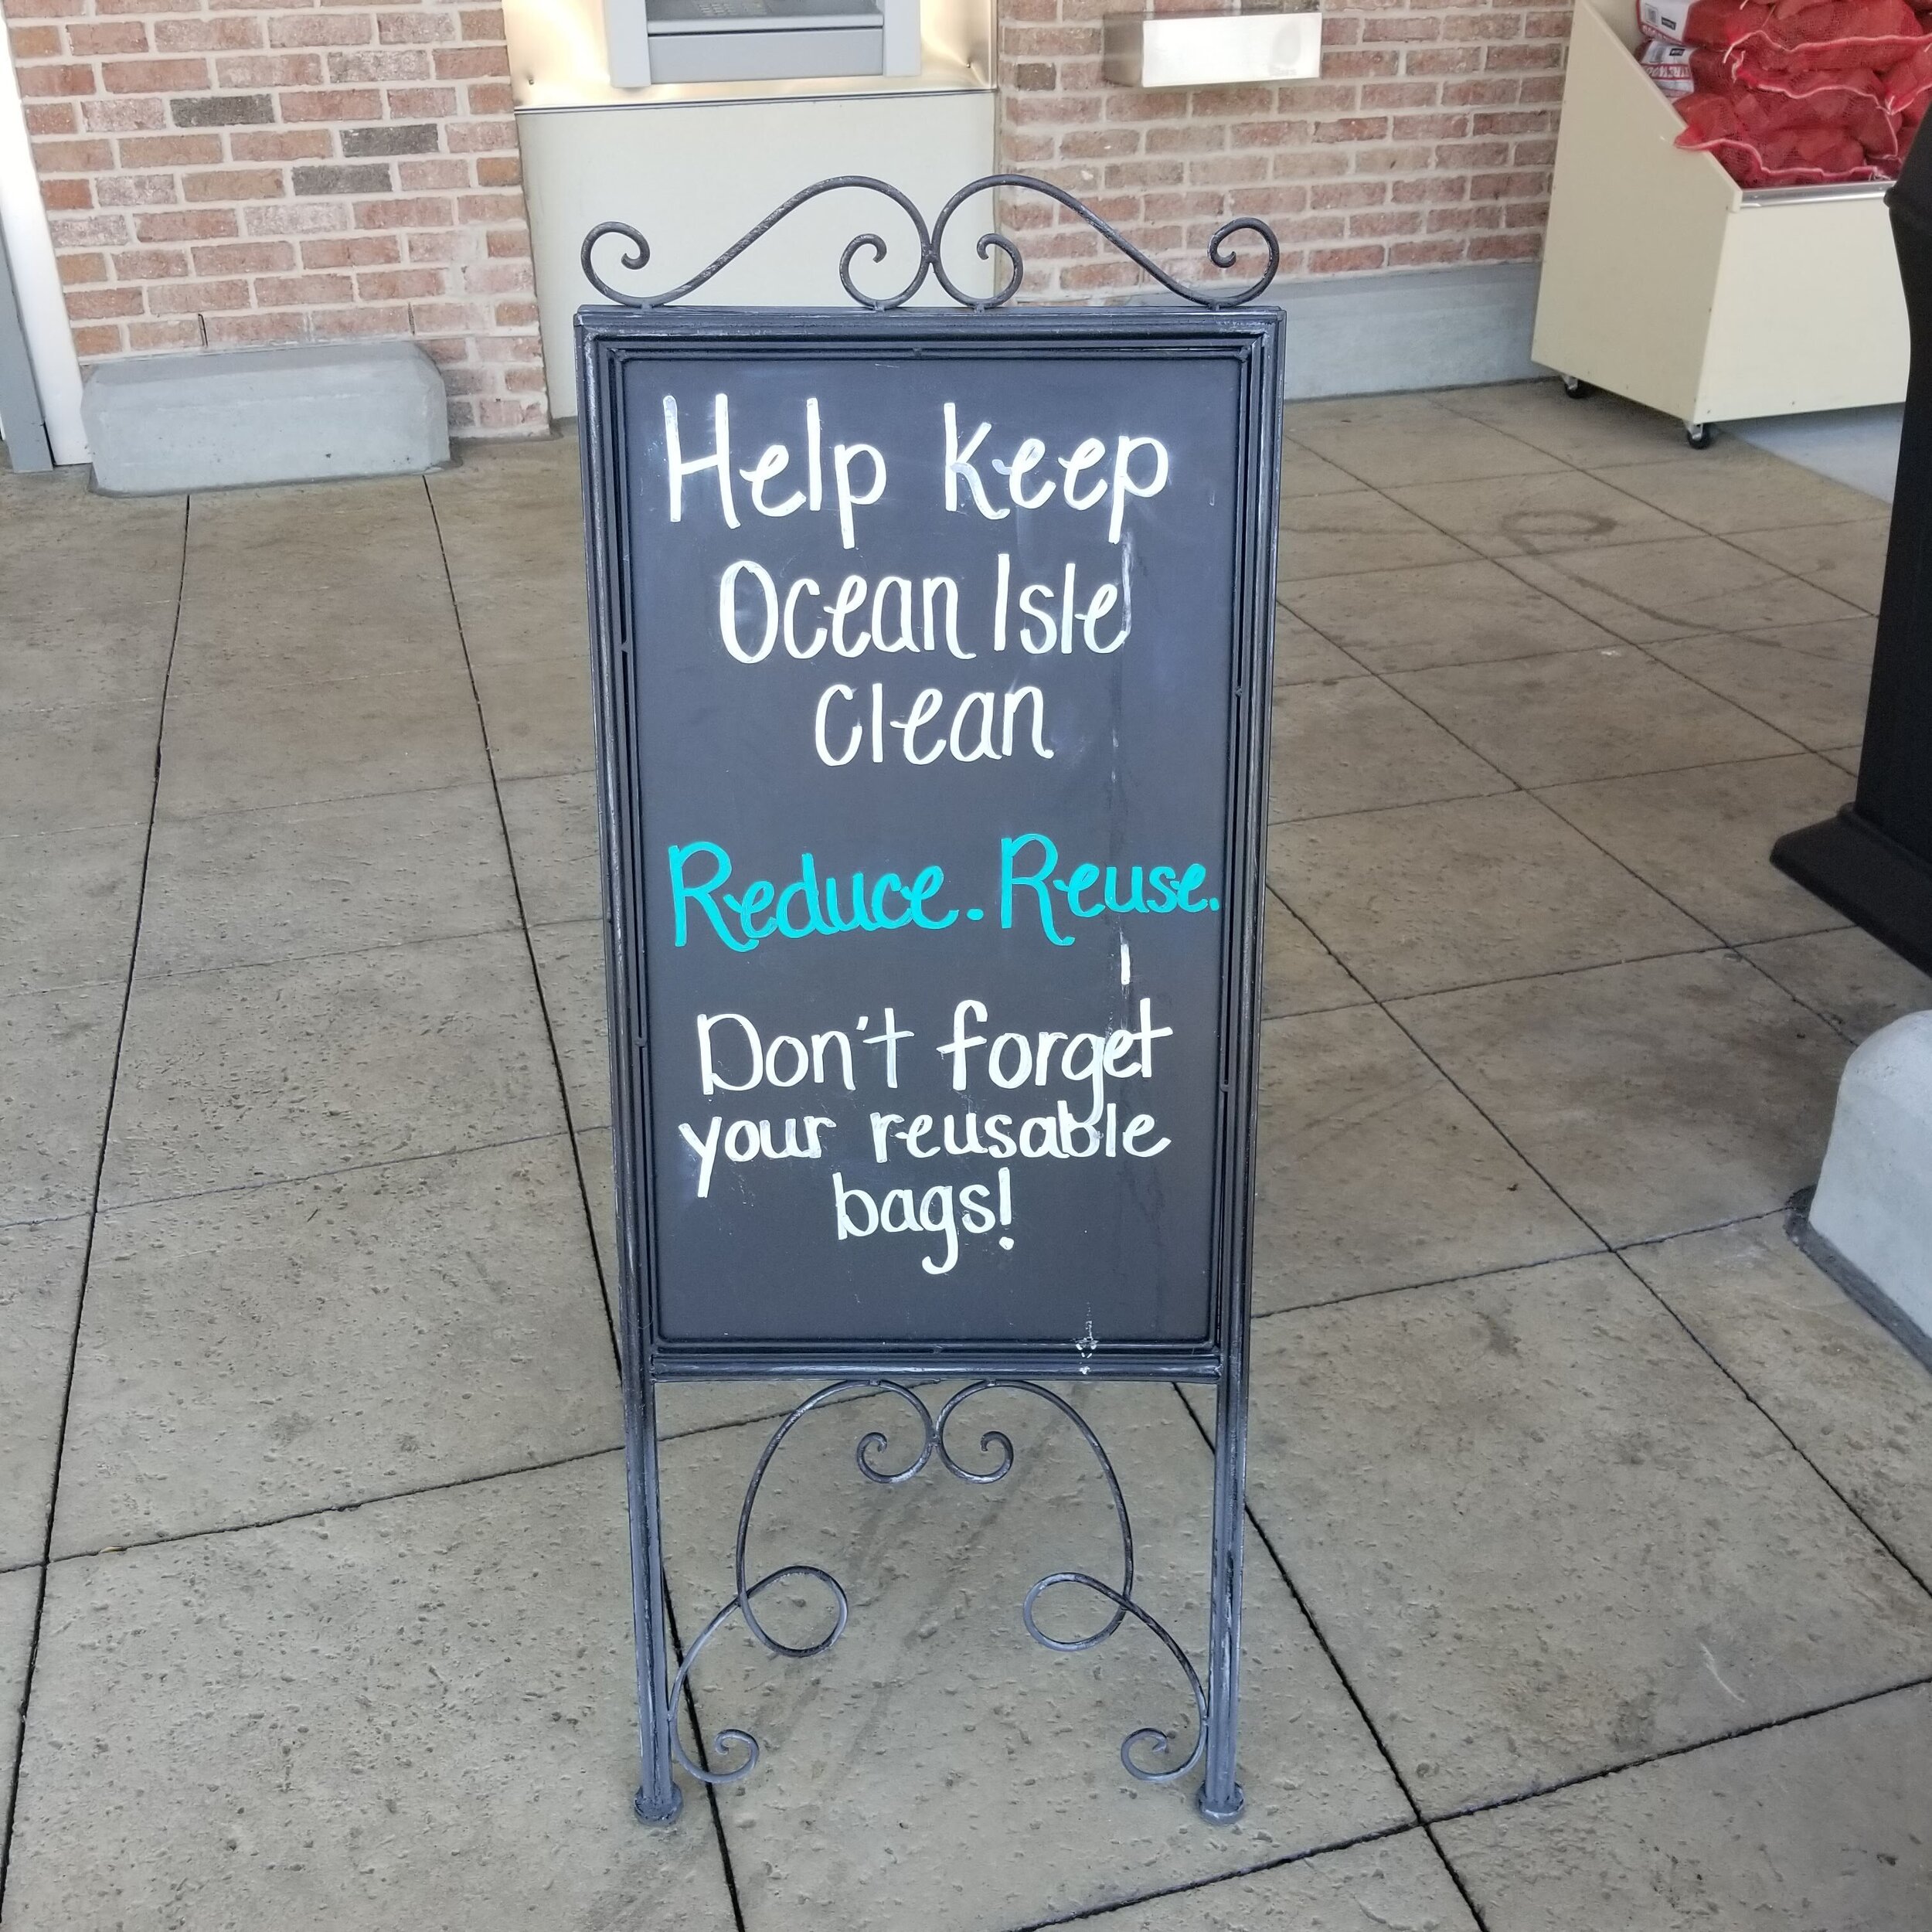 Help Keep
Ocean Isle
Clean
Reduce. Reuse.
Don't forget
your reusable
bags!